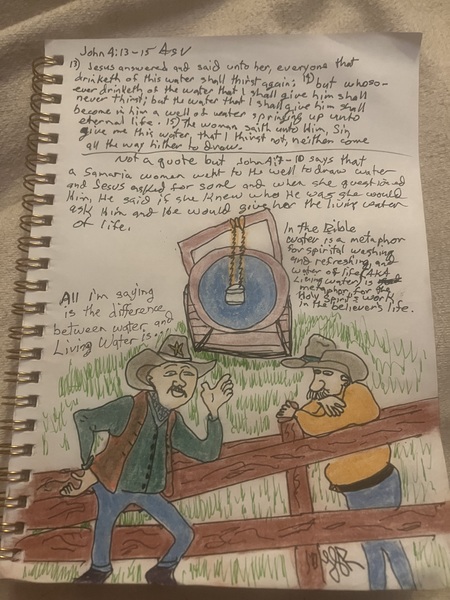 John 4:13-15 ASV
13) Jesus answered and said unto her, everyone that
drinketh of this water shall thirst again: 14) but whoso-
ever drinketh of the water that I shall give him shall
never thirst; but the water that I shall give him shall
become in him a well of water springing up unto
eternal life. 15) The woman saith unto Him, Sir,
give me this water, that I thirst not, neither come
all the way hither to draw.
Not a quote but John 4:7-10 says that
a Samaria women went to the well to draw water
and Jesus asked for some and when she questioned
Him, He said if she knew who He was she would
ask Him and He would give her the living water
of life.
In the Bible
water is a metaphor
for spirital washing
and refreshing, and
water of life AKA
Living water, is
metaphor, for the
Holy Spirit's work
in the believer's life.
All i'm saying
is the difference
between water and
Living Water is...